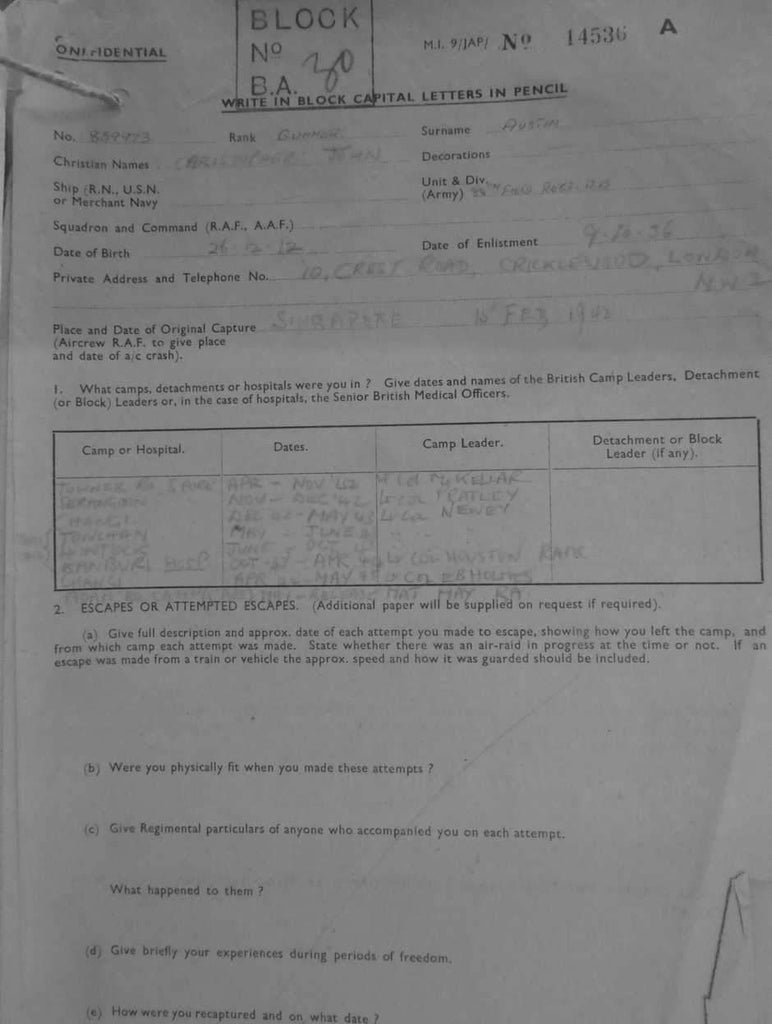 CONFIDENTIAL
BLOCK
No
B.A. 30
M.I. 9/JAP/ No 14536 A
WRITE IN BLOCK CAPITAL LETTERS IN PENCIL
No. Rank GUNNER Surname AUSTIN
Christian Names CHRISTOPHER JOHN Decorations
Ship (R.N., U.S.N. or Merchant Navy
Unit & Div. (Army) FIELD REGT
Squadron and Command (R.A.F., A.A.F.)
Date of Birth 26.12.12 Date of Enlistment 9-10-36
Private Address and Telephone No. 10, CREST ROAD, CRICKLEWOOD, LONDON
NW2
Place and Date of Original Capture SINGAPORE FEB 1942
(Aircrew R.A.F. to give place
and date of a/c crash).
1. What camps, detachments or hospitals were you in ? Give dates and names of the British Camp Leaders, Detachment
(or Block) Leaders or, in the case of hospitals, the Senior British Medical Officers.
Camp or Hospital. Dates. Camp Leader. Detachment or Block Leader (if any).
APR - NOV 42 Lt Col McKELLAR
SERANGOON NOV - DEC 42 Lt Col PRATLEY
CHANGI DEC 42 - MAY 43 Lt Col NEWEY
TONCHAN MAY - JUNE
JUNE OCT
KANBURI HOSP OCT APR Lt COL HOUSTON RAMC
CHANGI APR MAY Lt COL E B HOLMES
MAY
2. ESCAPES OR ATTEMPTED ESCAPES. (Additional paper will be supplied on request if required).
(a) Give full description and approx. date of each attempt you made to escape, showing how you left the camp, and
from which camp each attempt was made. State whether there was an air-raid in progress at the time or not. If an
escape was made from a train or vehicle the approx. speed and how it was guarded should be included.
(b) Were you physically fit when you made these attempts ?
(c) Give Regimental particulars of anyone who accompanied you on each attempt.
What happened to them ?
(d) Give briefly your experiences during periods of freedom.
(e) How were you recaptured and on what date ?